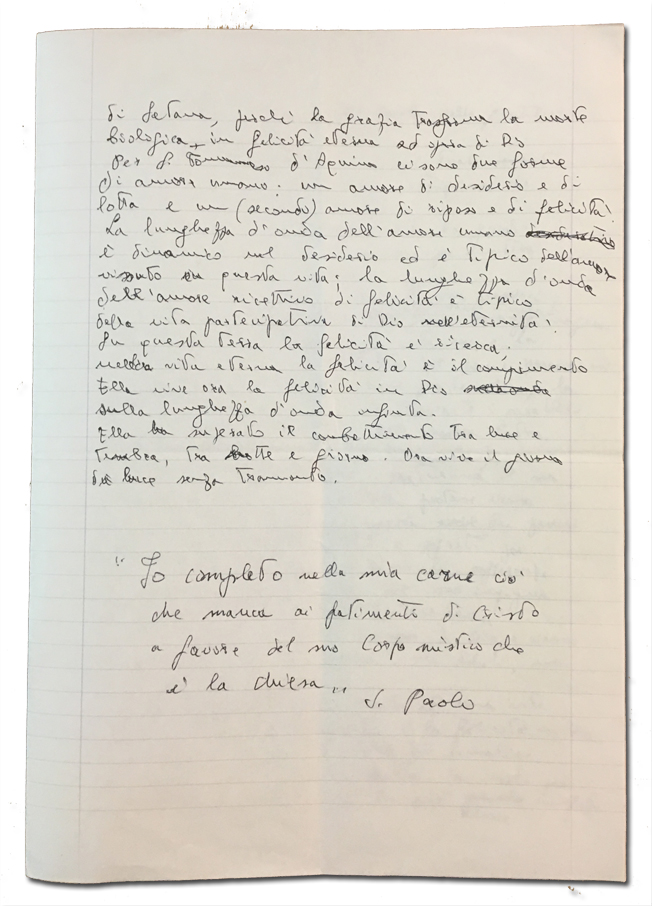 di Satana, perché la grazia trasforma la morte
biologica in felicità eterna ad opera di Dio
Per S. Tommaso d'Aquino ci sono due forme
di amore umano: un amore di desiderio e di
lotta e un (secondo) amore di riposo e di felicità.
La lunghezza d'onda dell'amore umano
è dinamico nel desiderio ed è tipico dell'amore
vissuto in questa vita; la lunghezza d'onda
dell'amore ricettivo di felicità è tipico
della vita partecipativa di Dio nell'eternità.
In questa terra la felicità è ricerca,
nella vita eterna la felicità è il compimento
Ella vive ora la felicità in Dio
sulla lunghezza d'onda infinita.
Ella ha superato il combattimento tra luce e
tenebra, tra notte e giorno. Ora vive il giorno
di luce senza tramonto.
"Io completo nella mia carne ciò
che manca ai patimenti di Cristo
a favore del suo Corpo mistico che
è la chiesa"
S. Paolo